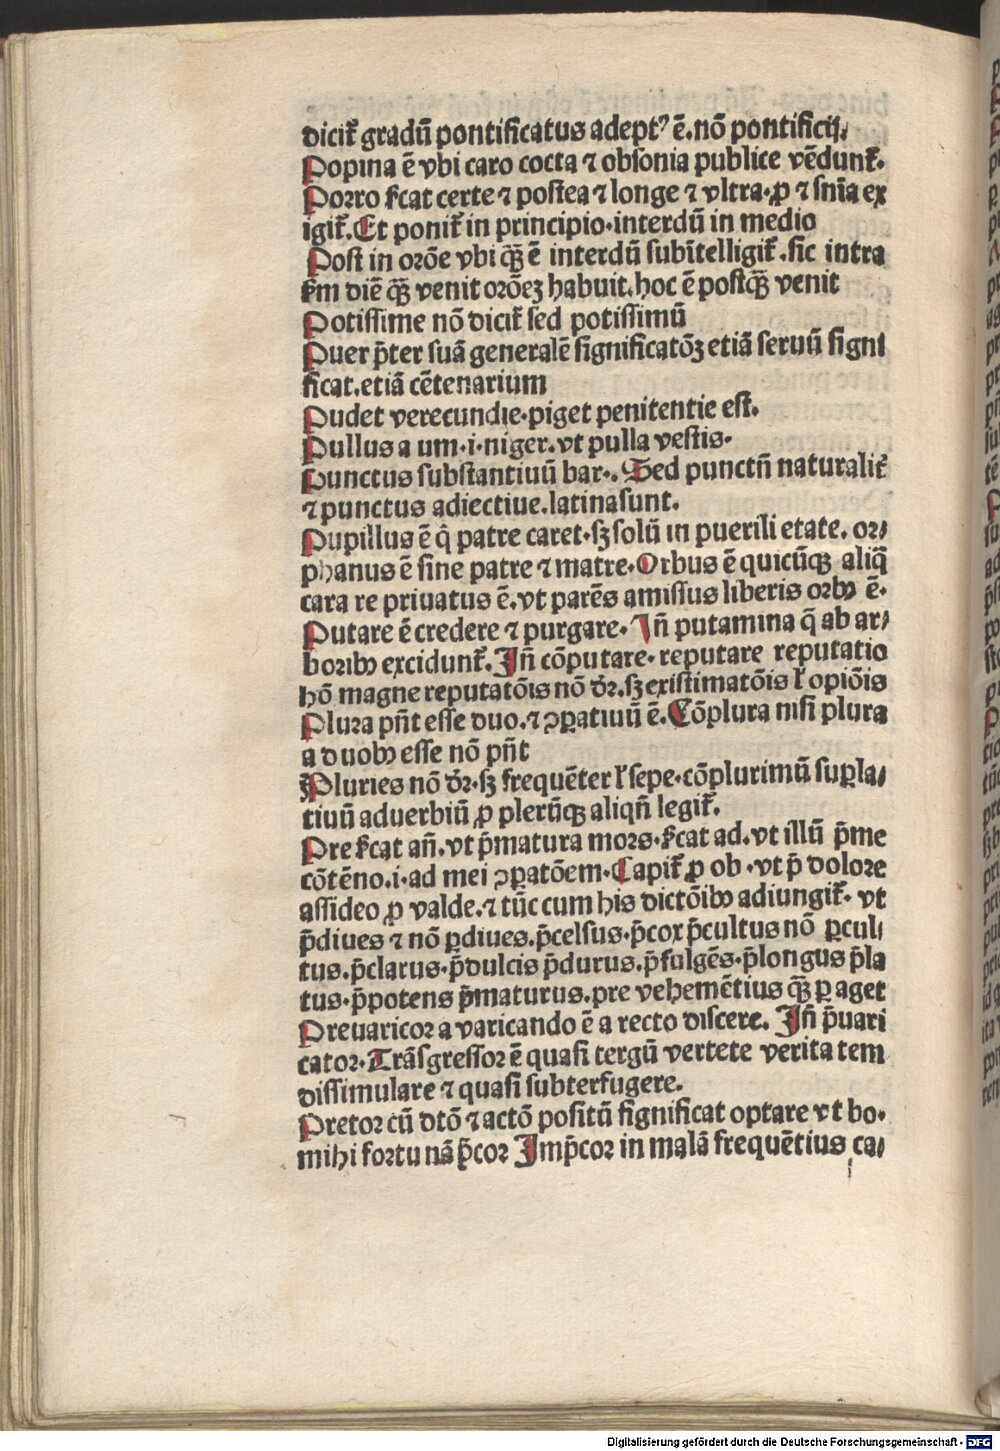 dicit᷑ gradū pontificatus adeptꝰ ē. nō pontificij.
Popina ē vbi caro cocta ⁊ obsonia publice vēdunt᷑.
Porro ſ̄cat certe ⁊ postea ⁊ longe ⁊ vltra. ꝓ ⁊ sn̄ia ex
igit᷑. Et ponit᷑ in principio. interdū in medio
Post in orōe vbi qꝫ̄ ē interdū subītelligit᷑. sic intra
ſ̄m diē qꝫ̄ venit orōeꝫ habuit. hoc ē postqꝫ̄ venit
Potissime nō dicit᷑ sed potissimū
Puer p̄ter suā generalē significatōꝫ etiā seruū signi
ficat. etiā cētenarium
Pudet verecundie. piget penitentie est.
Pullus a um. i. niger. vt pulla vestis.
Punctus substantiuū bar.. Sed punctū naturalit᷑
⁊ punctus adiectiue. latina sunt.
Pupillus ē q̇ patre caret. sꝫ solū in puerili etate. or⸗
phanus ē sine patre ⁊ matre. Orbus ē quicūqꝫ aliq̄
cara re priuatus ē. vt parēs amissus liberis orbꝰ ē.
Putare ē credere ⁊ purgare. Iñ putamina q̄ ab ar⸗
boribꝰ excidunt᷑. Iñ cōputare. reputare reputatio
hō magne reputatōis nō dr̄. sꝫ existimatōis ł opiōis
Plura pn̄t esse duo. ⁊ ꝯꝑatiuū ē. Cōplura nisi plura
a duobꝰ esse nō pn̄t
Pluries nō dr̄. sꝫ frequēter ł sepe. cōplurimū suꝑla⸗
tiuū aduerbiū ꝓ plerūqꝫ aliqn̄ legit᷑.
Pre ſ̄cat añ. vt p̄matura mors. ſ̄cat ad. vt illū p̄me
cōtēno. i. ad mei ꝯꝑatōem. Capit᷑ ꝓ ob. vt p̄ dolore
assideo ꝓ valde. ⁊ tūc cum his dictōibꝰ adiungit᷑. vt
p̄diues ⁊ nō ꝑdiues. p̄celsus. p̄cox p̄cultus nō ꝑcul⸗
tus. p̄clarus. p̄dulcis p̄durus. p̄fulgēs. p̄longus p̄la
tus. p̄potens p̄maturus. pre vehemētius qꝫ̄ ꝑ aget
Preuaricor a varicando ē a recto discere. Iñ p̄uari
cator. Trāsgressor ē quasi tergū vertete veritatem
dissimulare ⁊ quasi subterfugere.
Pretor cū dtō ⁊ actō positū significat optare vt bo.
mihi fortunā p̄cor Imp̄cor in malā frequētius ca⸗
Digitalisierung gefördert durch die Deutsche Forschungsgemeinschaft - DFG